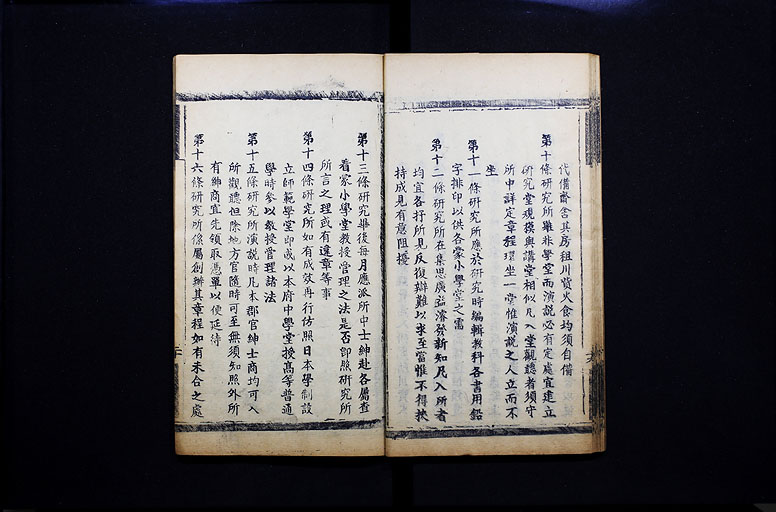 代備齋舍其房租川資火食均須自備
第十條研究所雖非學堂而演說必有定處宜建立
研究堂規模與講堂相似凡入堂觀聽者須守
所中詳定章程環坐一堂惟演說之人立而不
坐
第十一條研究所應於研究時編輯教科各書用鉛
字排印以供各蒙小學堂之需
第十二條研究所在集思廣益濬發新知凡入所者
均宜各抒所見反復辯難以求至當惟不得挾
持成見有意阻擾
第十三條研究畢後每月應派所中士紳赴各屬查
看蒙小學堂教授管理之法是否即照研究所
所言之理或有違章等事
第十四條研究所如有成效再行仿照日本學制設
立師範學堂即或以本府中學堂授高等普通
學時參以教授管理諸法
第十五條研究所演說時凡本郡官紳士商均可入
所觀聽但除地方官隨時可至無須知照外所
有紳商宜先領取憑單以便延待
第十六條研究所係屬創辦其章程如有未合之處